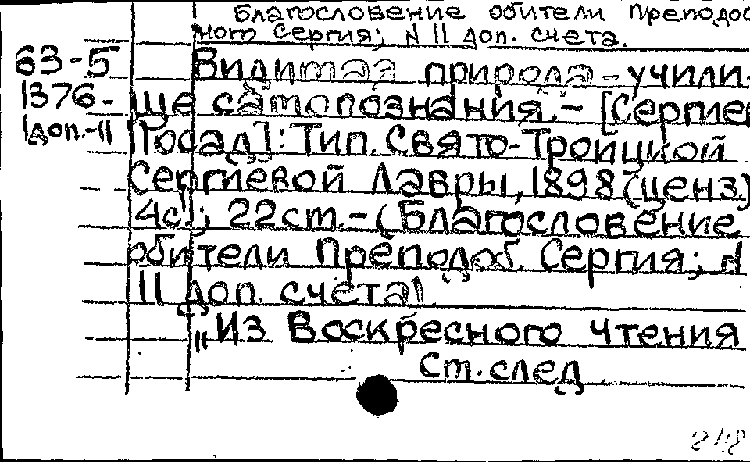 Благословение обители Преподоб
ного Сергия; N 11 доп. счета.
63-5 Видимая природа - учили-
1376- ще самопознания. - [Сергиев
1доп.-11 Посад]: Тип. Свято-Троицкой
Сергиевой Лавры, 1898 (ценз)
4с.; 22 см. - (Благословение
обители Преподоб. Сергия; N
11 доп. счета).
"Из Воскресного чтения
См. след